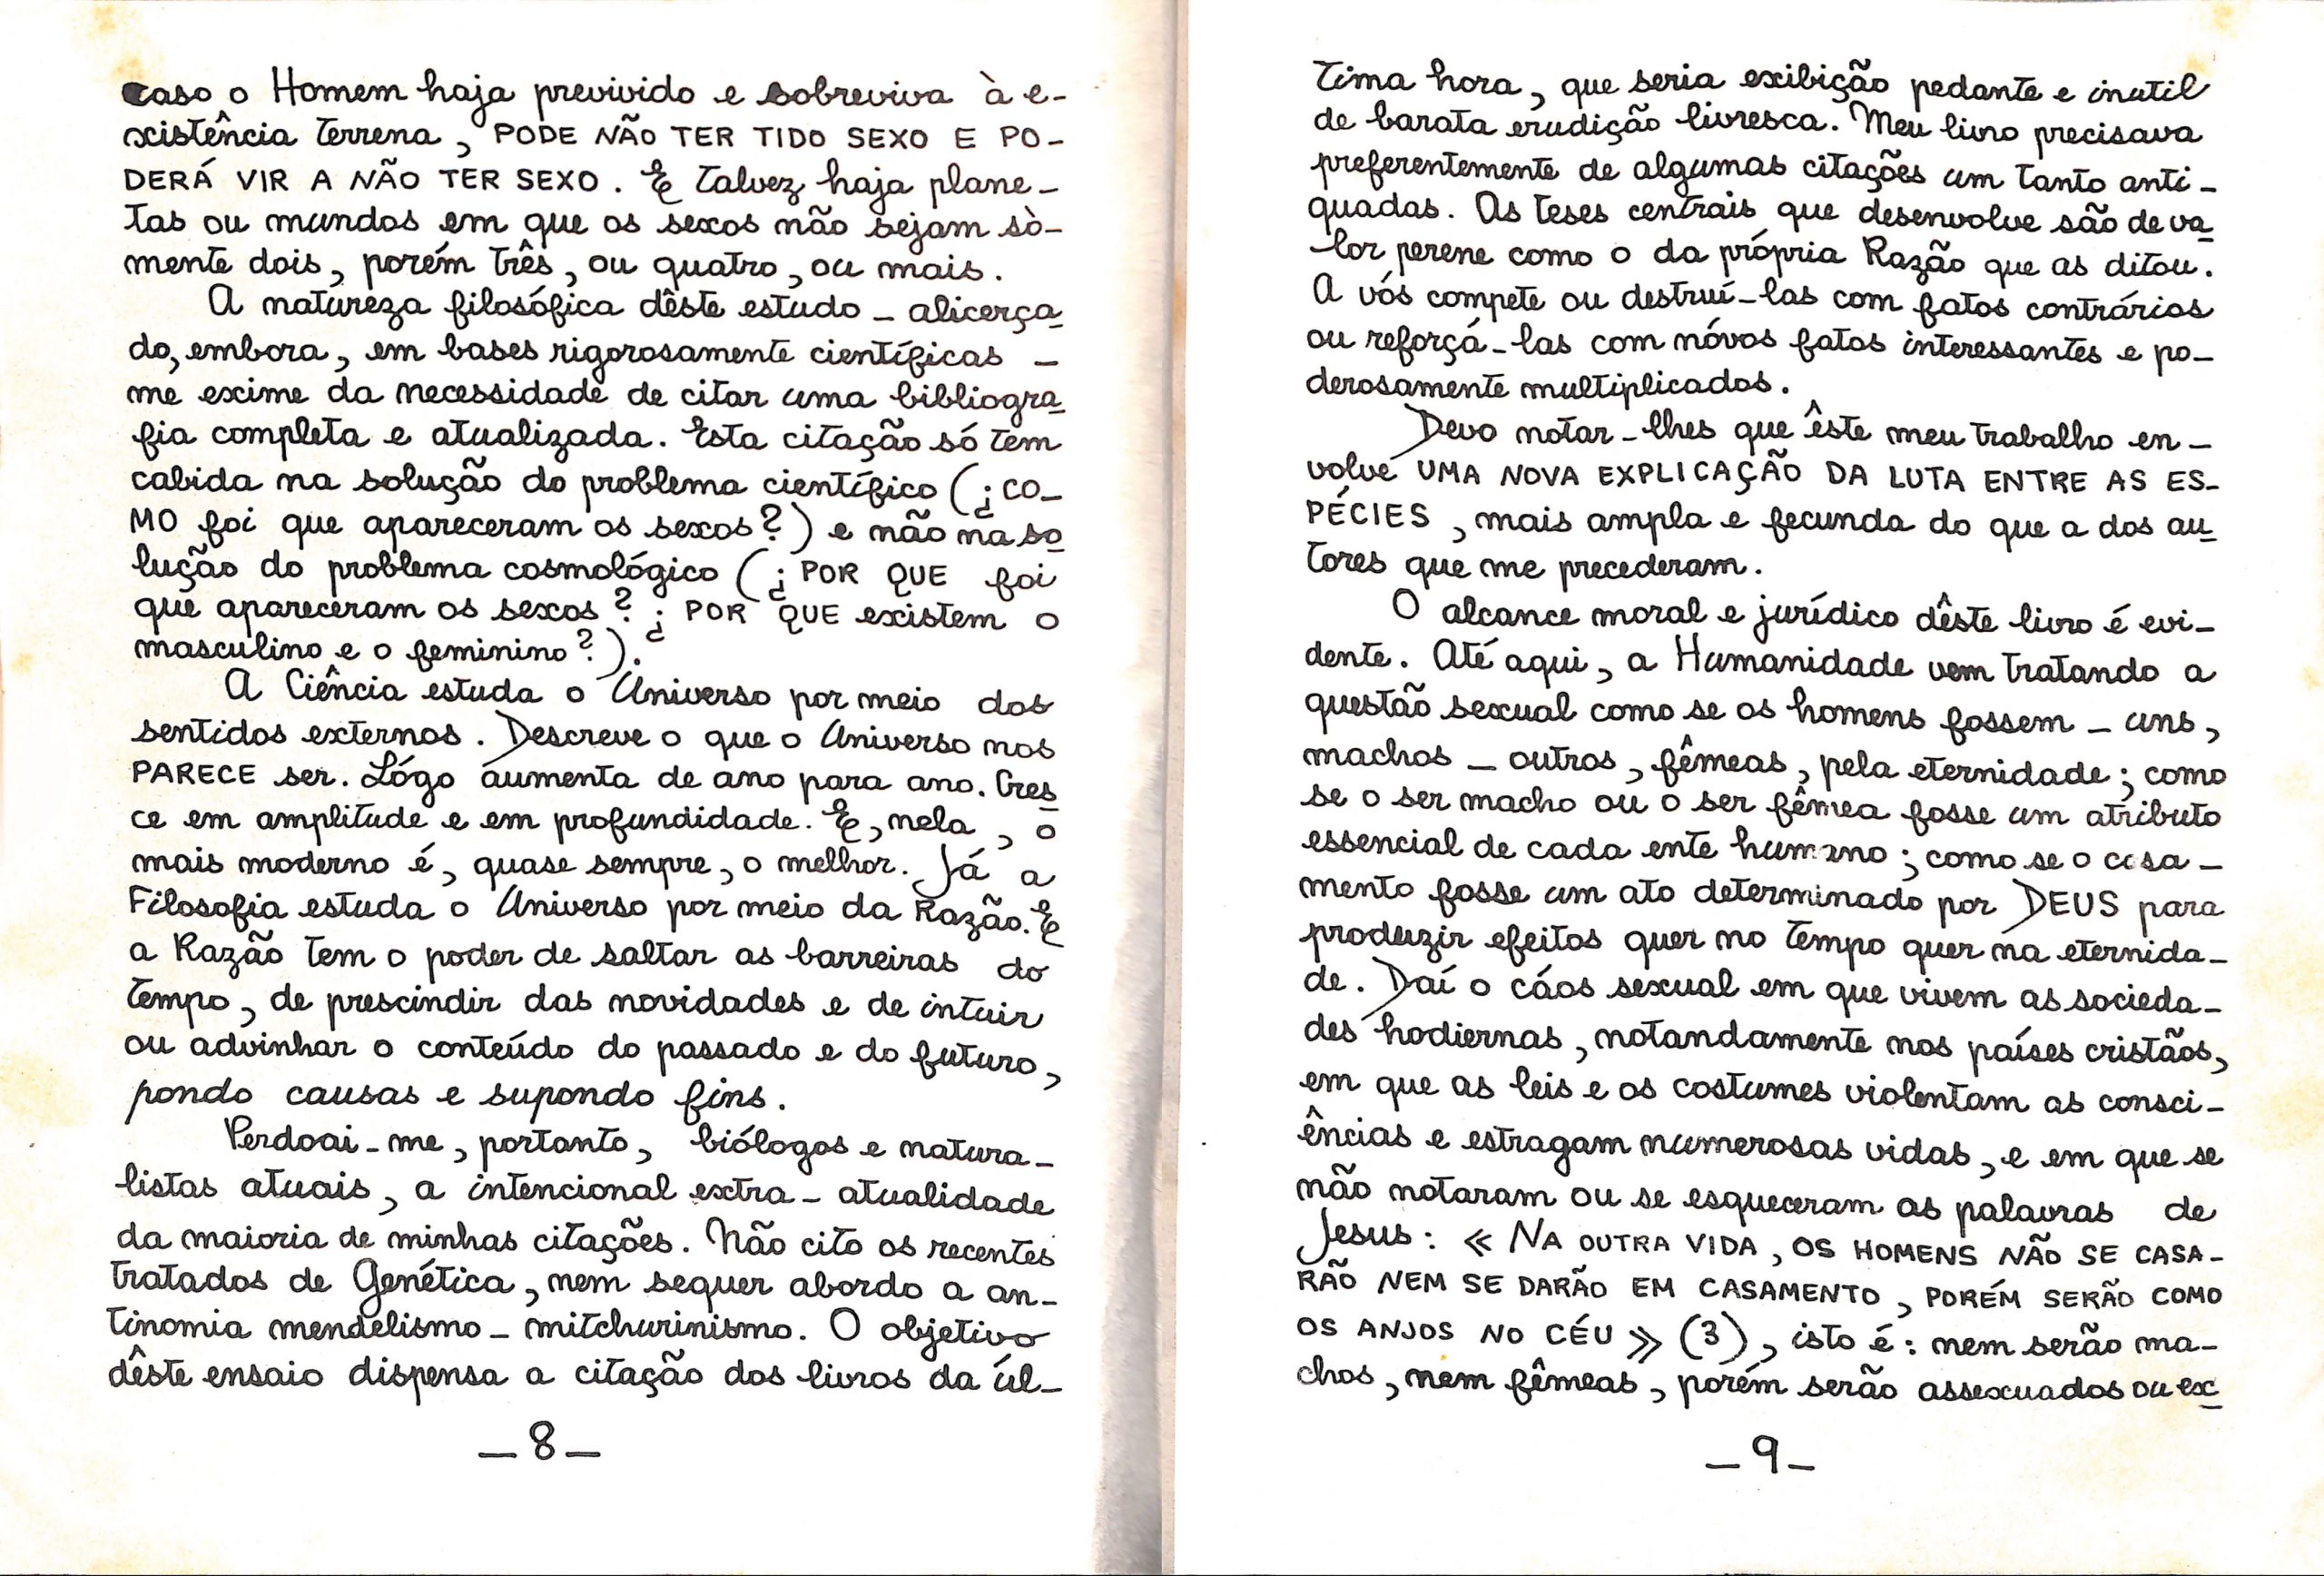 caso o Homem haja previvido e sobreviva à e-
xistência terrena, PODE NÃO TER TIDO SEXO E PO-
DERÁ VIR A NÃO TER SEXO. E talvez haja plane-
tas ou mundos em que os sexos não sejam sò-
mente dois, porém três, ou quatro, ou mais.
A natureza filosófica dêste estudo - alicerça
do, embora, em bases rigorosamente científicas -
me exime da necessidade de citar uma bibliogra
fia completa e atualizada. Esta citação só tem
cabida na solução do problema científico (¿CO-
MO foi que apareceram os sexos?) e não na so
lução do problema cosmológico (¿POR QUE foi
que apareceram os sexos? ¿POR QUE existem o
masculino e o feminino?).
A Ciência estuda o Universo por meio dos
sentidos externos. Descreve o que o Universo nos
PARECE ser. Lógo aumenta de ano para ano. Cres
ce em amplitude e em profundidade. E, nela, o
mais moderno é, quase sempre, o melhor. Já a
Filosofia estuda o Universo por meio da Razão. E
a Razão tem o poder de saltar as barreiras do
tempo, de prescindir das novidades e de intuir
ou advinhar o conteúdo do passado e do futuro,
pondo causas e supondo fins.
Perdoai-me, portanto, biólogos e natura-
listas atuais, a intencional extra-atualidade
da maioria de minhas citações. Não cito os recentes
tratados de Genética, nem sequer abordo a an-
tinomia mendelismo-mitchurinismo. O objetivo
dêste ensaio dispensa a citação dos livros da úl-
-8-
tima hora, que seria exibição pedante e inutil
de barata erudição livresca. Meu livro precisava
preferentemente de algumas citações um tanto anti-
quadas. As teses centrais que desenvolve são de va
lor perene como o da própria Razão que as ditou.
A vós compete ou destruí-las com fatos contrários
ou reforçá-las com nóvos fatos interessantes e po-
derosamente multiplicados.
Devo notar-lhes que êste meu trabalho en-
volve UMA NOVA EXPLICAÇÃO DA LUTA ENTRE AS ES-
PÉCIES, mais ampla e fecunda do que a dos au
tores que me precederam.
O alcance moral e jurídico dêste livro é evi-
dente. Até aqui, a Humanidade vem tratando a
questão sexual como se os homens fossem - uns,
machos - outros, fêmeas, pela eternidade; como
se o ser macho ou o ser fêmea fosse um atributo
essencial de cada ente humano; como se o casa-
mento fosse um ato determinado por DEUS para
produzir efeitos quer no tempo quer na eternida-
de. Daí o cáos sexual em que vivem as socieda-
des hodiernas, notandamente nos países cristãos,
em que as leis e os costumes violentam as consci-
ências e estragam numerosas vidas, e em que se
não notaram ou se esqueceram as palavras de
Jesus: « NA OUTRA VIDA, OS HOMENS NÃO SE CASA-
RÃO NEM SE DARÃO EM CASAMENTO, PORÉM SERÃO COMO
OS ANJOS NO CÉU » (3), isto é: nem serão ma-
chos, nem fêmeas, porém serão assexuados ou ex
-9-